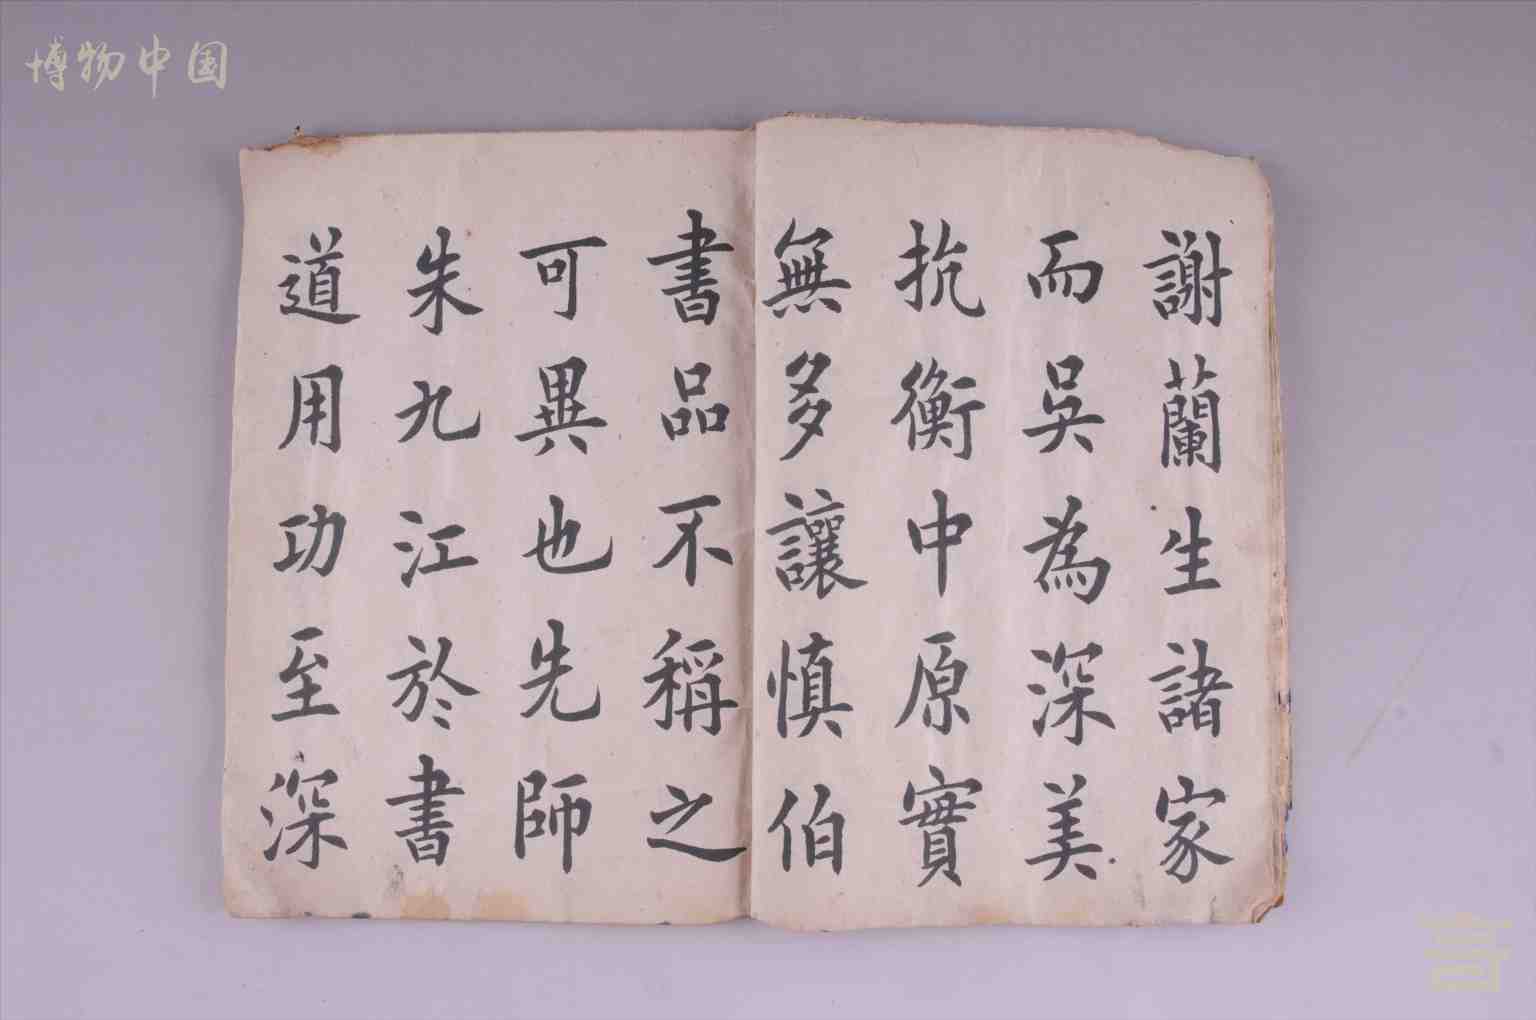 博物中国
謝蘭生諸家
而吳為深美
抗衡中原實
無多讓慎伯
書品不稱之
可異也先師
朱九江於書
道用功至深